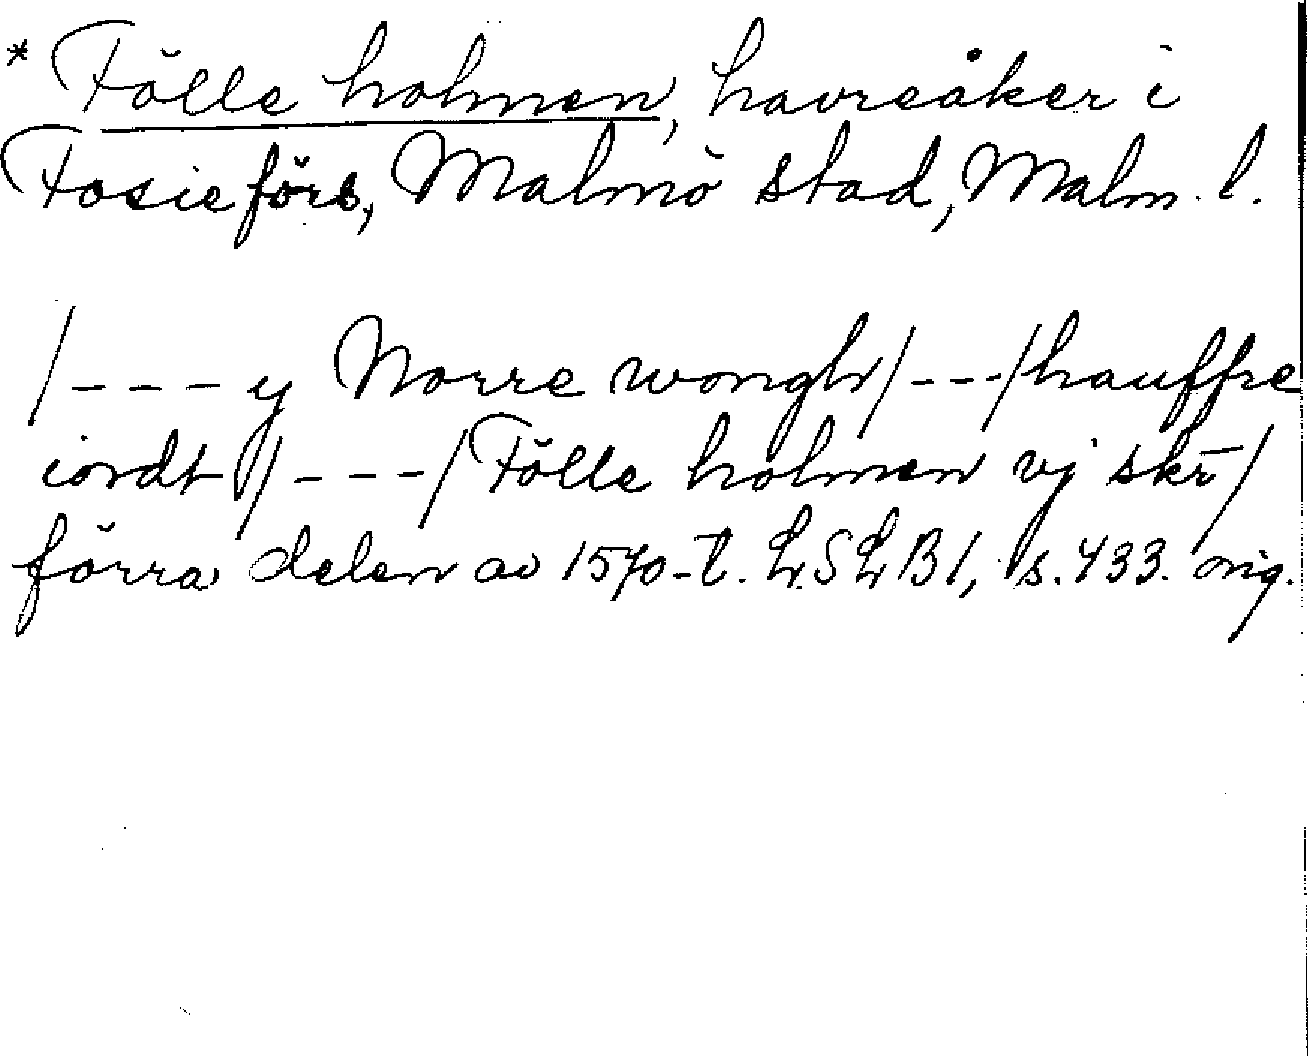 * Fölle holmen, havreåker i
Fosie förs, Malmö stad, Malm. l.
/---y Norre wongh/---/hauffre
iordt/---/Fölle holmen vj skr̄/
förra delen av 1570-t. LSLB1, s. 433. orig.